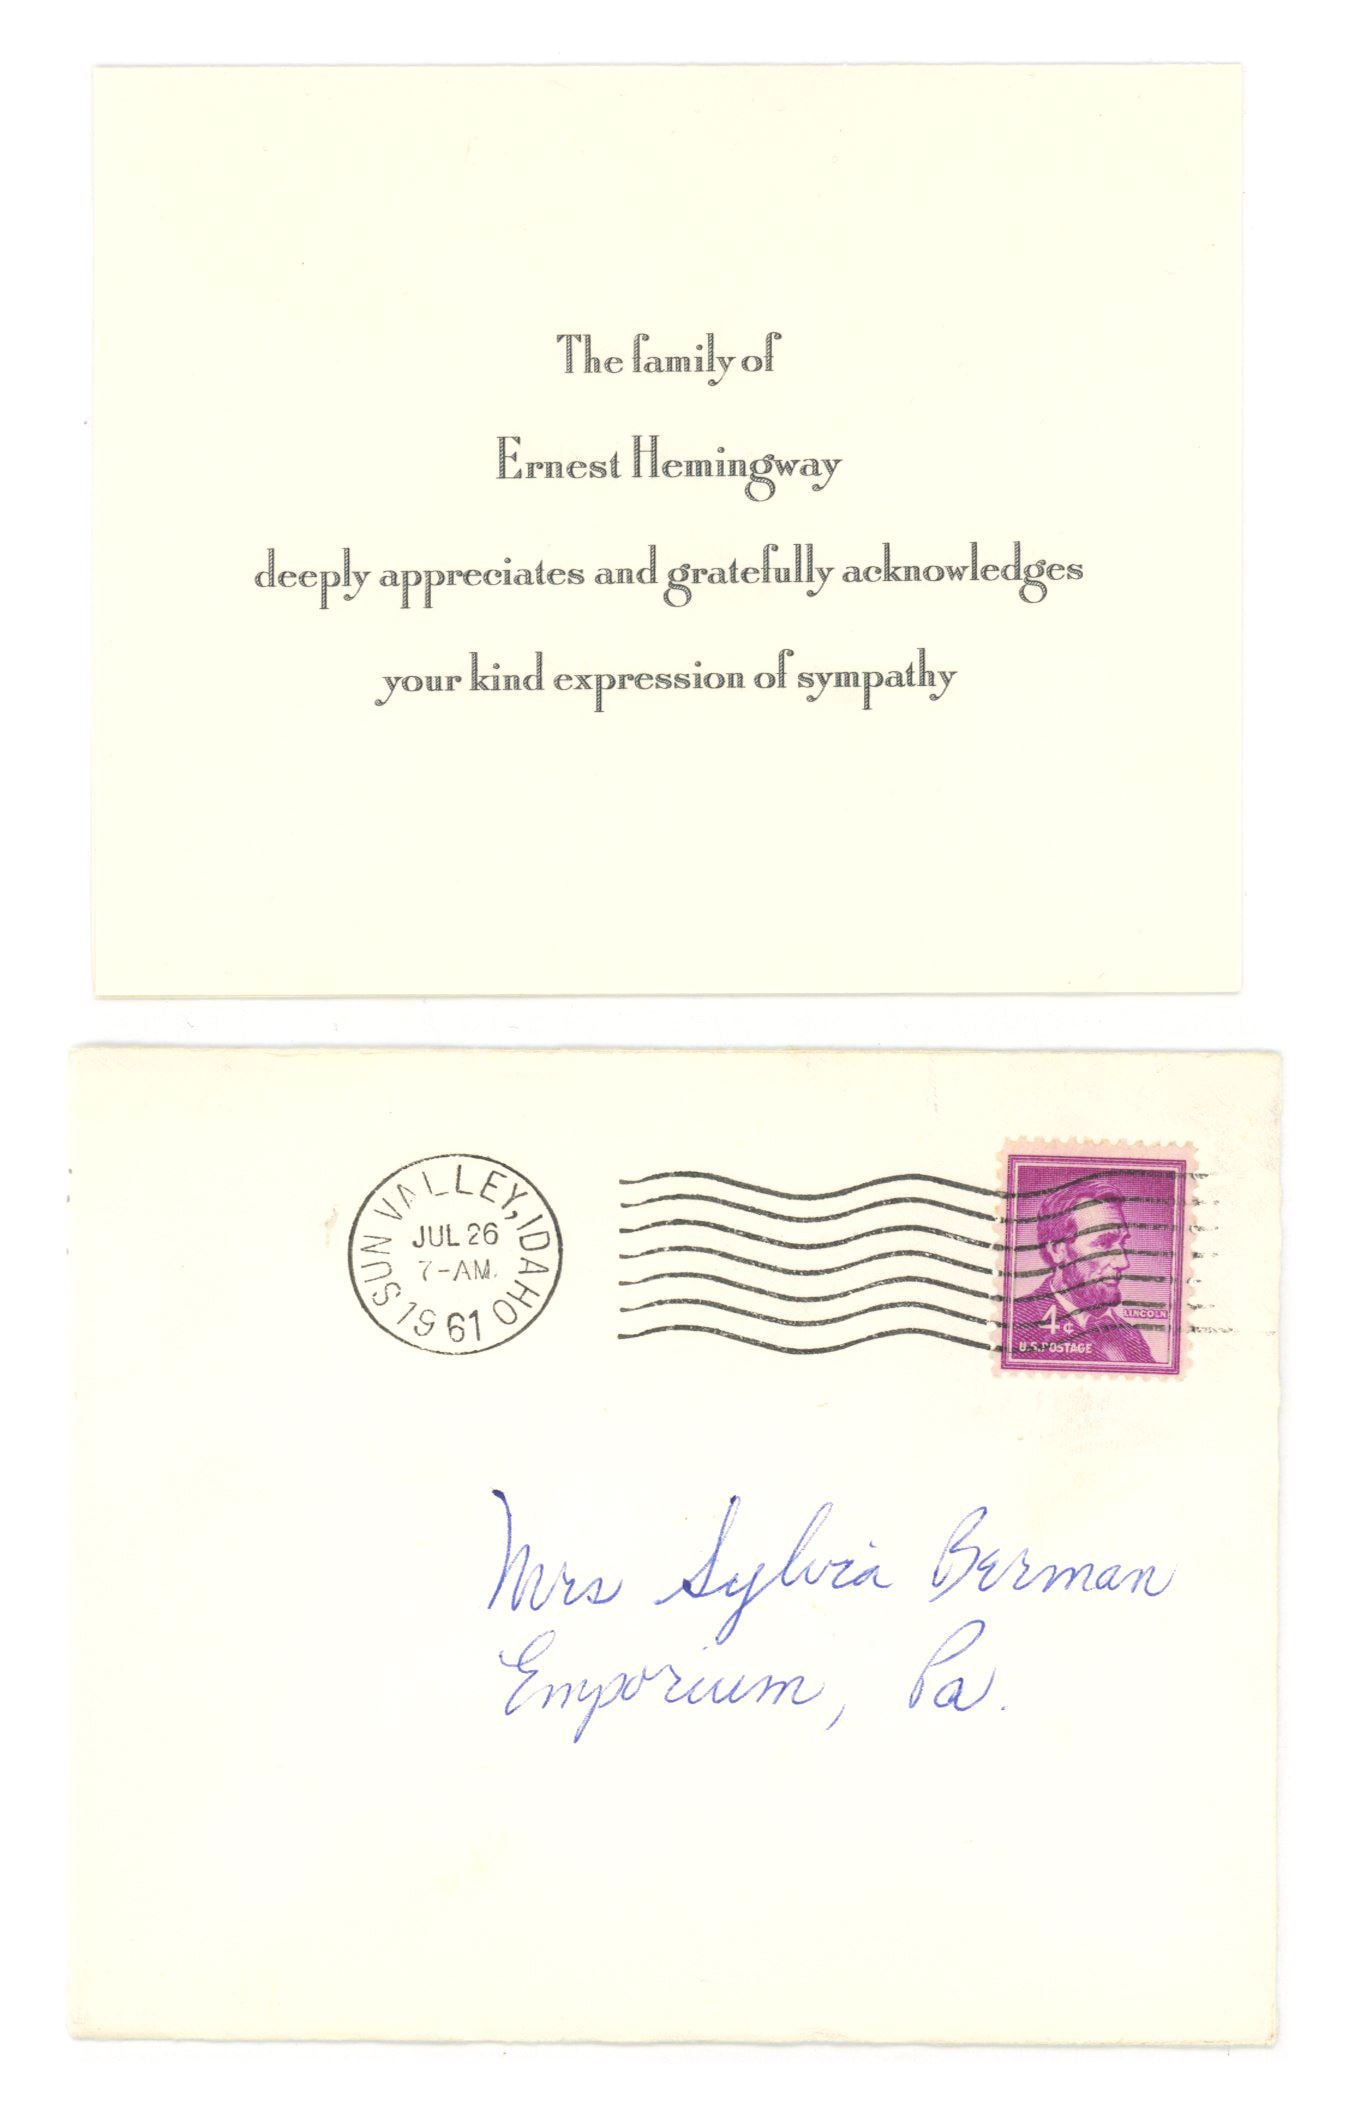 The family of
Ernest Hemingway
deeply appreciates and gratefully acknowledges
your kind expression of sympathy
SUN VALLEY, IDAHO
JUL 26
7-AM.
1961
LINCOLN
4¢
U.S. POSTAGE
Mrs Sylvia Berman
Emporium, Pa.